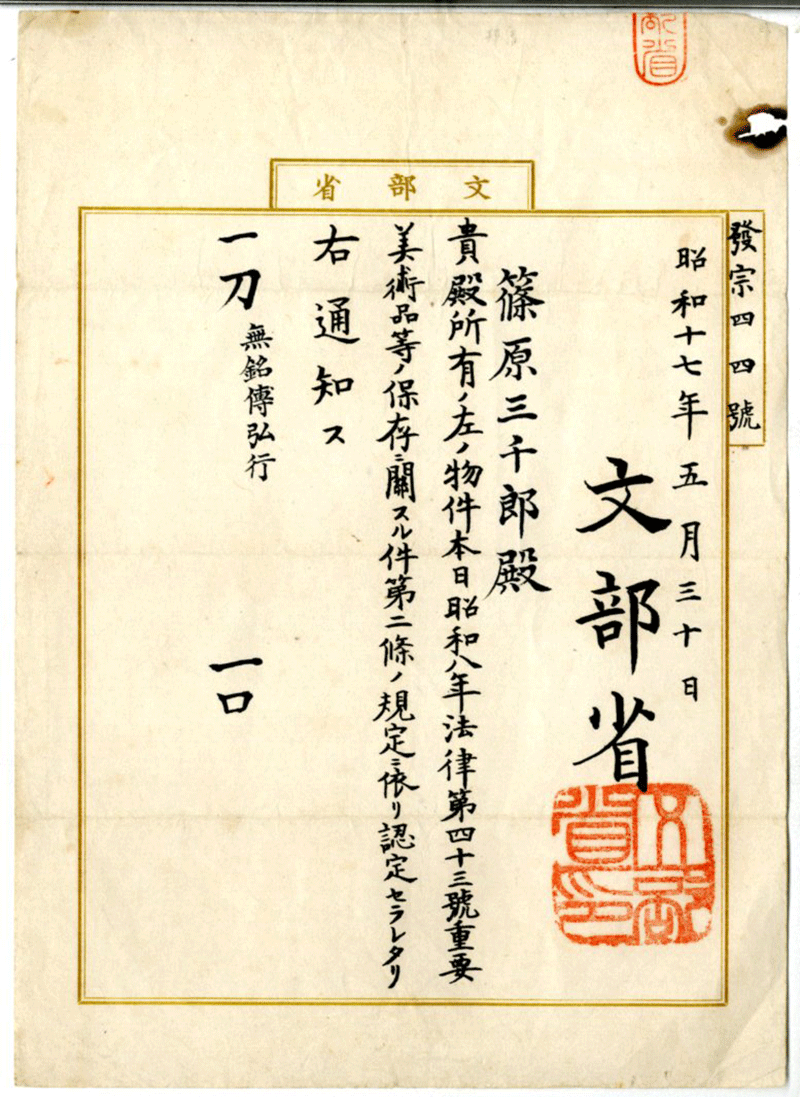 文部省
發宗四四號
昭和十七年五月三十日
文部省
文部省印
篠原三千郎殿
貴殿所有ノ左ノ物件本日昭和八年法律第四十三號重要
美術品等ノ保存ニ關スル件第二條ノ規定ニ依リ認定セラレタリ
右通知ス
一刀 無銘傳弘行 一口